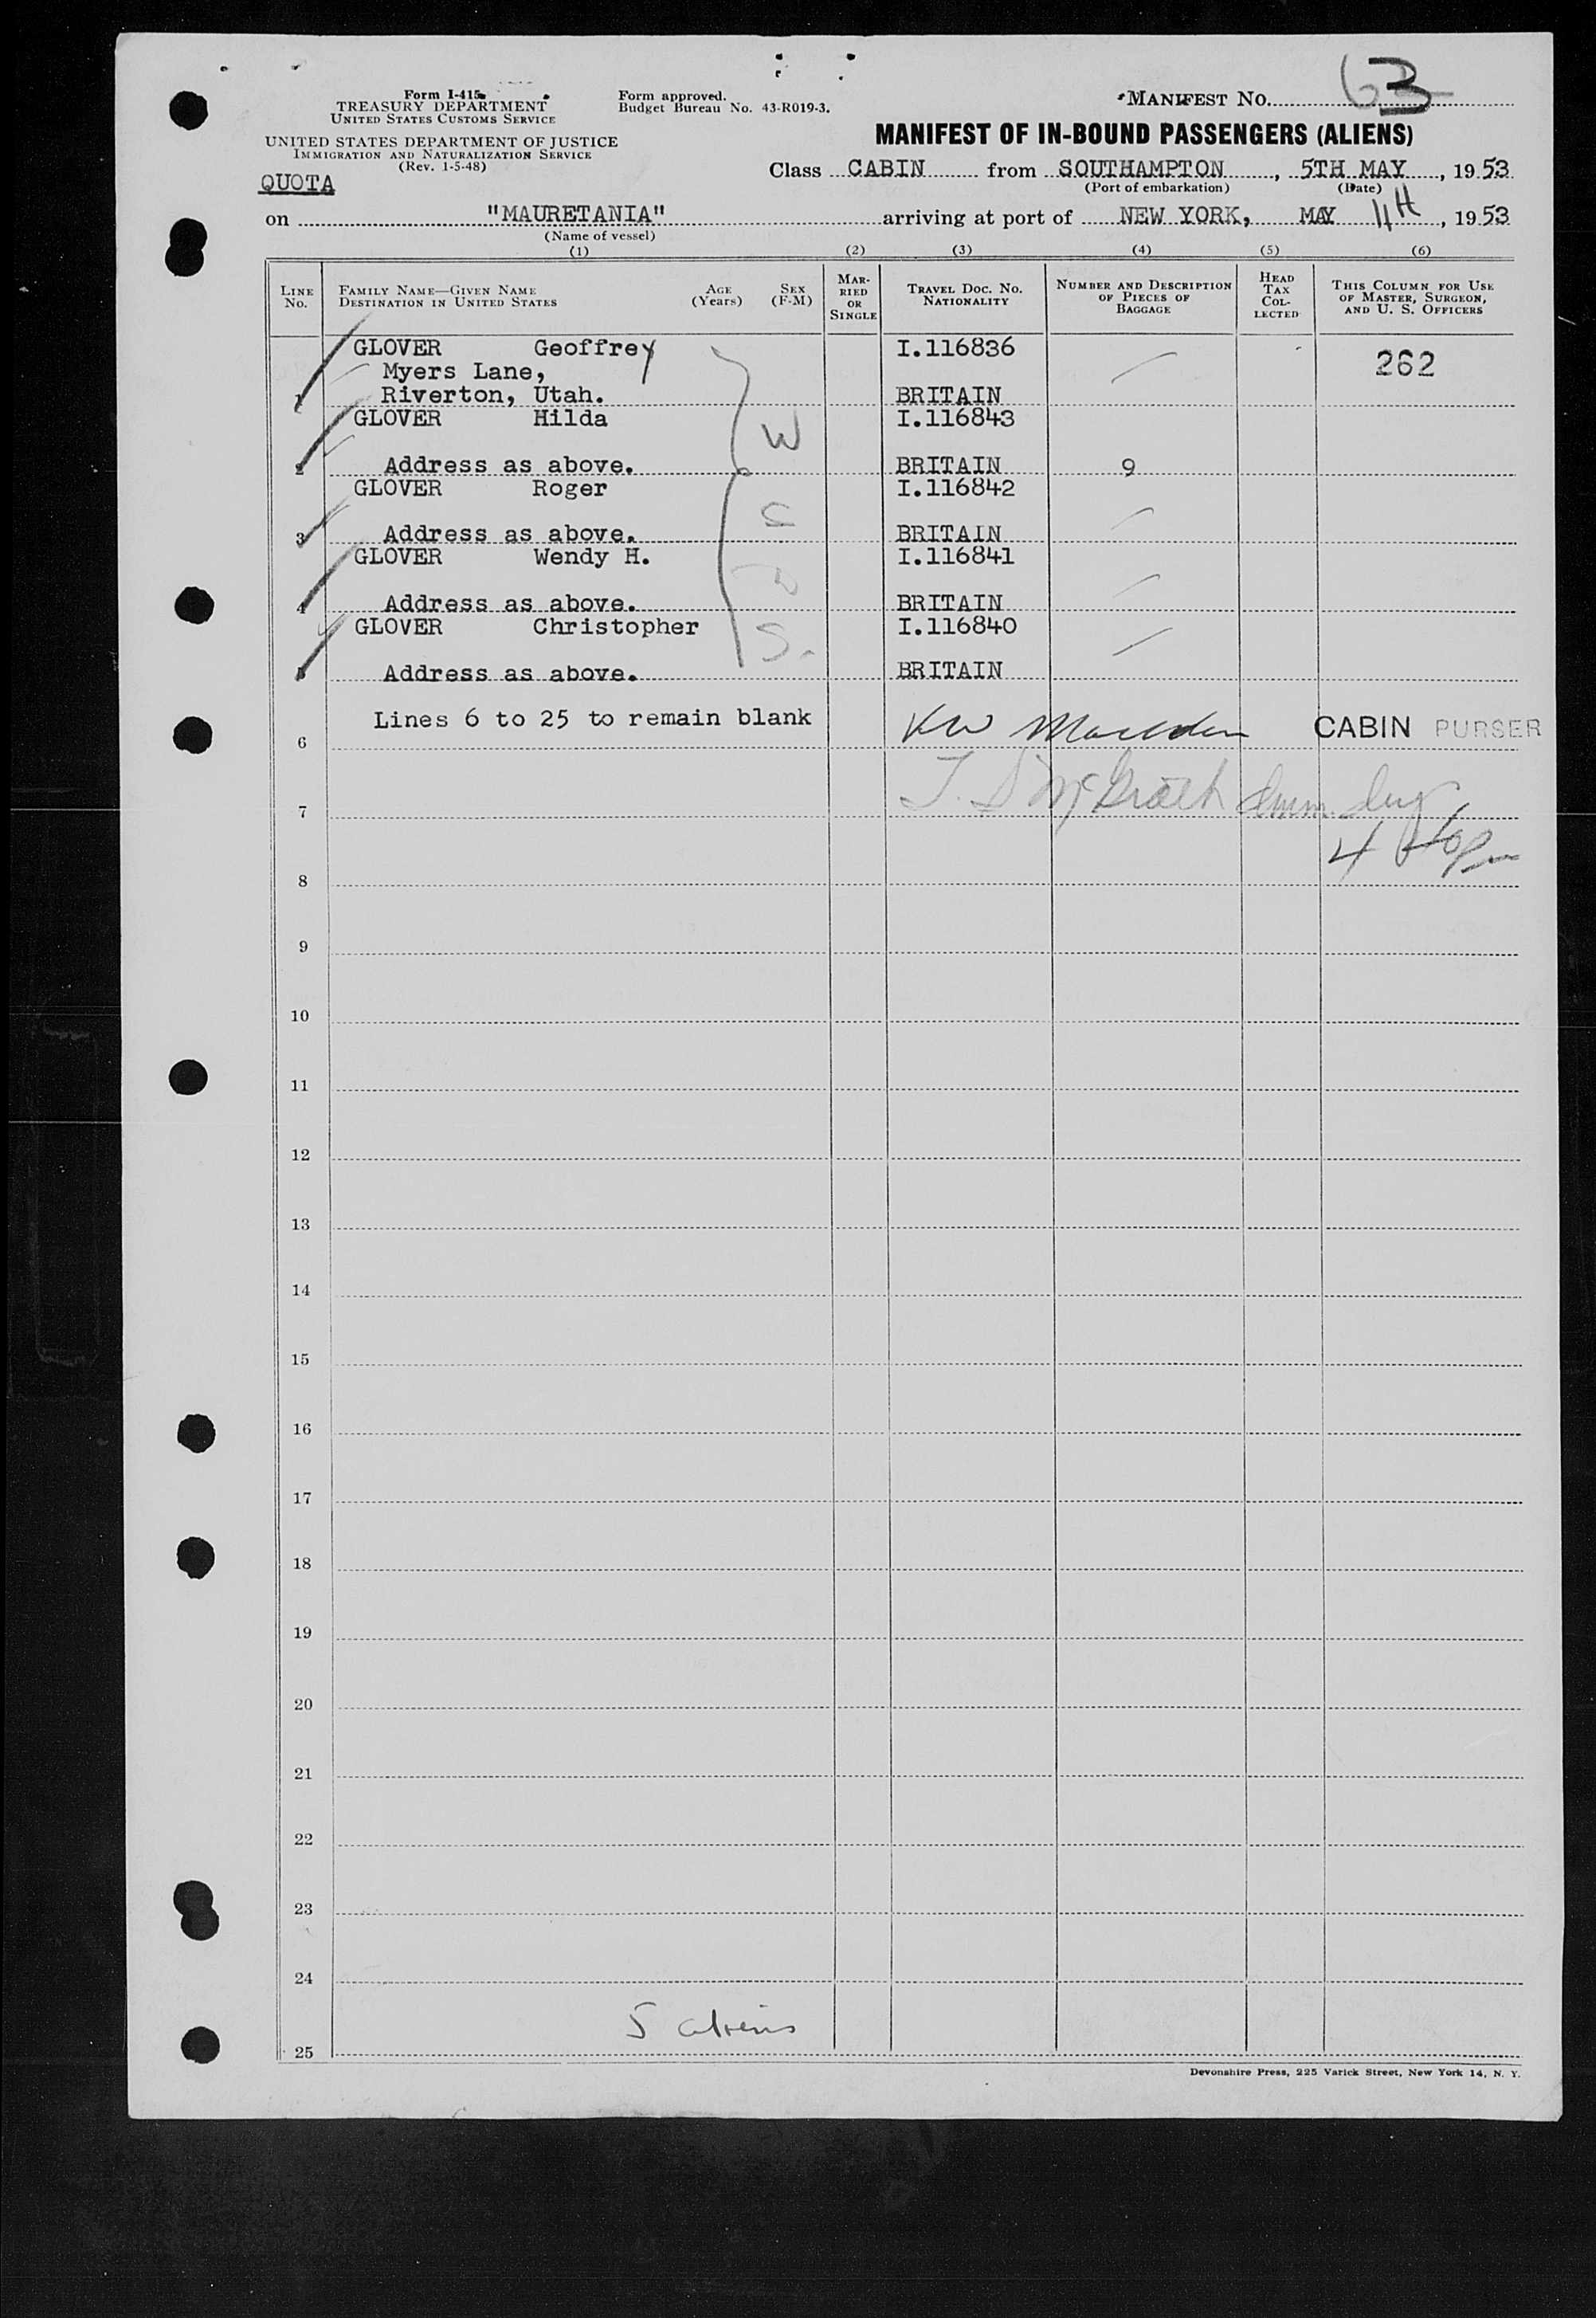 63
Form I-415
TREASURY DEPARTMENT
UNITED STATES CUSTOMS SERVICE
UNITED STATES DEPARTMENT OF JUSTICE
IMMIGRATION AND NATURALIZATION SERVICE
(Rev. 1-5-48)
Form approved.
Budget Bureau No. 43-R019-3.
MANIFEST NO.
MANIFEST OF IN-BOUND PASSENGERS (ALIENS)
QUOTA
Class CABIN from SOUTHAMPTON, 5TH MAY, 1953
(Port of embarkation) (Date)
on "MAURETANIA" arriving at port of NEW YORK, MAY 11th, 1953
(Name of vessel)
(1) (2) (3) (4) (5) (6)
LINE No. FAMILY NAME—GIVEN NAME DESTINATION IN UNITED STATES AGE (Years) SEX (F-M) MARRIED OR SINGLE TRAVEL DOC. NO. NATIONALITY NUMBER AND DESCRIPTION OF PIECES OF BAGGAGE HEAD TAX COLLECTED THIS COLUMN FOR USE OF MASTER, SURGEON, AND U. S. OFFICERS
GLOVER Geoffrey I.116836 262
Myers Lane,
1 Riverton, Utah. BRITAIN
GLOVER Hilda W I.116843
2 Address as above. BRITAIN 9
GLOVER Roger S I.116842
3 Address as above. BRITAIN
GLOVER Wendy H. D I.116841
4 Address as above. BRITAIN
GLOVER Christopher S. I.116840
5 Address as above. BRITAIN
Lines 6 to 25 to remain blank CABIN PURSER
6
7
8
9
10
11
12
13
14
15
16
17
18
19
20
21
22
23
24
5 aliens
25
Devonshire Press, 225 Varick Street, New York 14, N. Y.